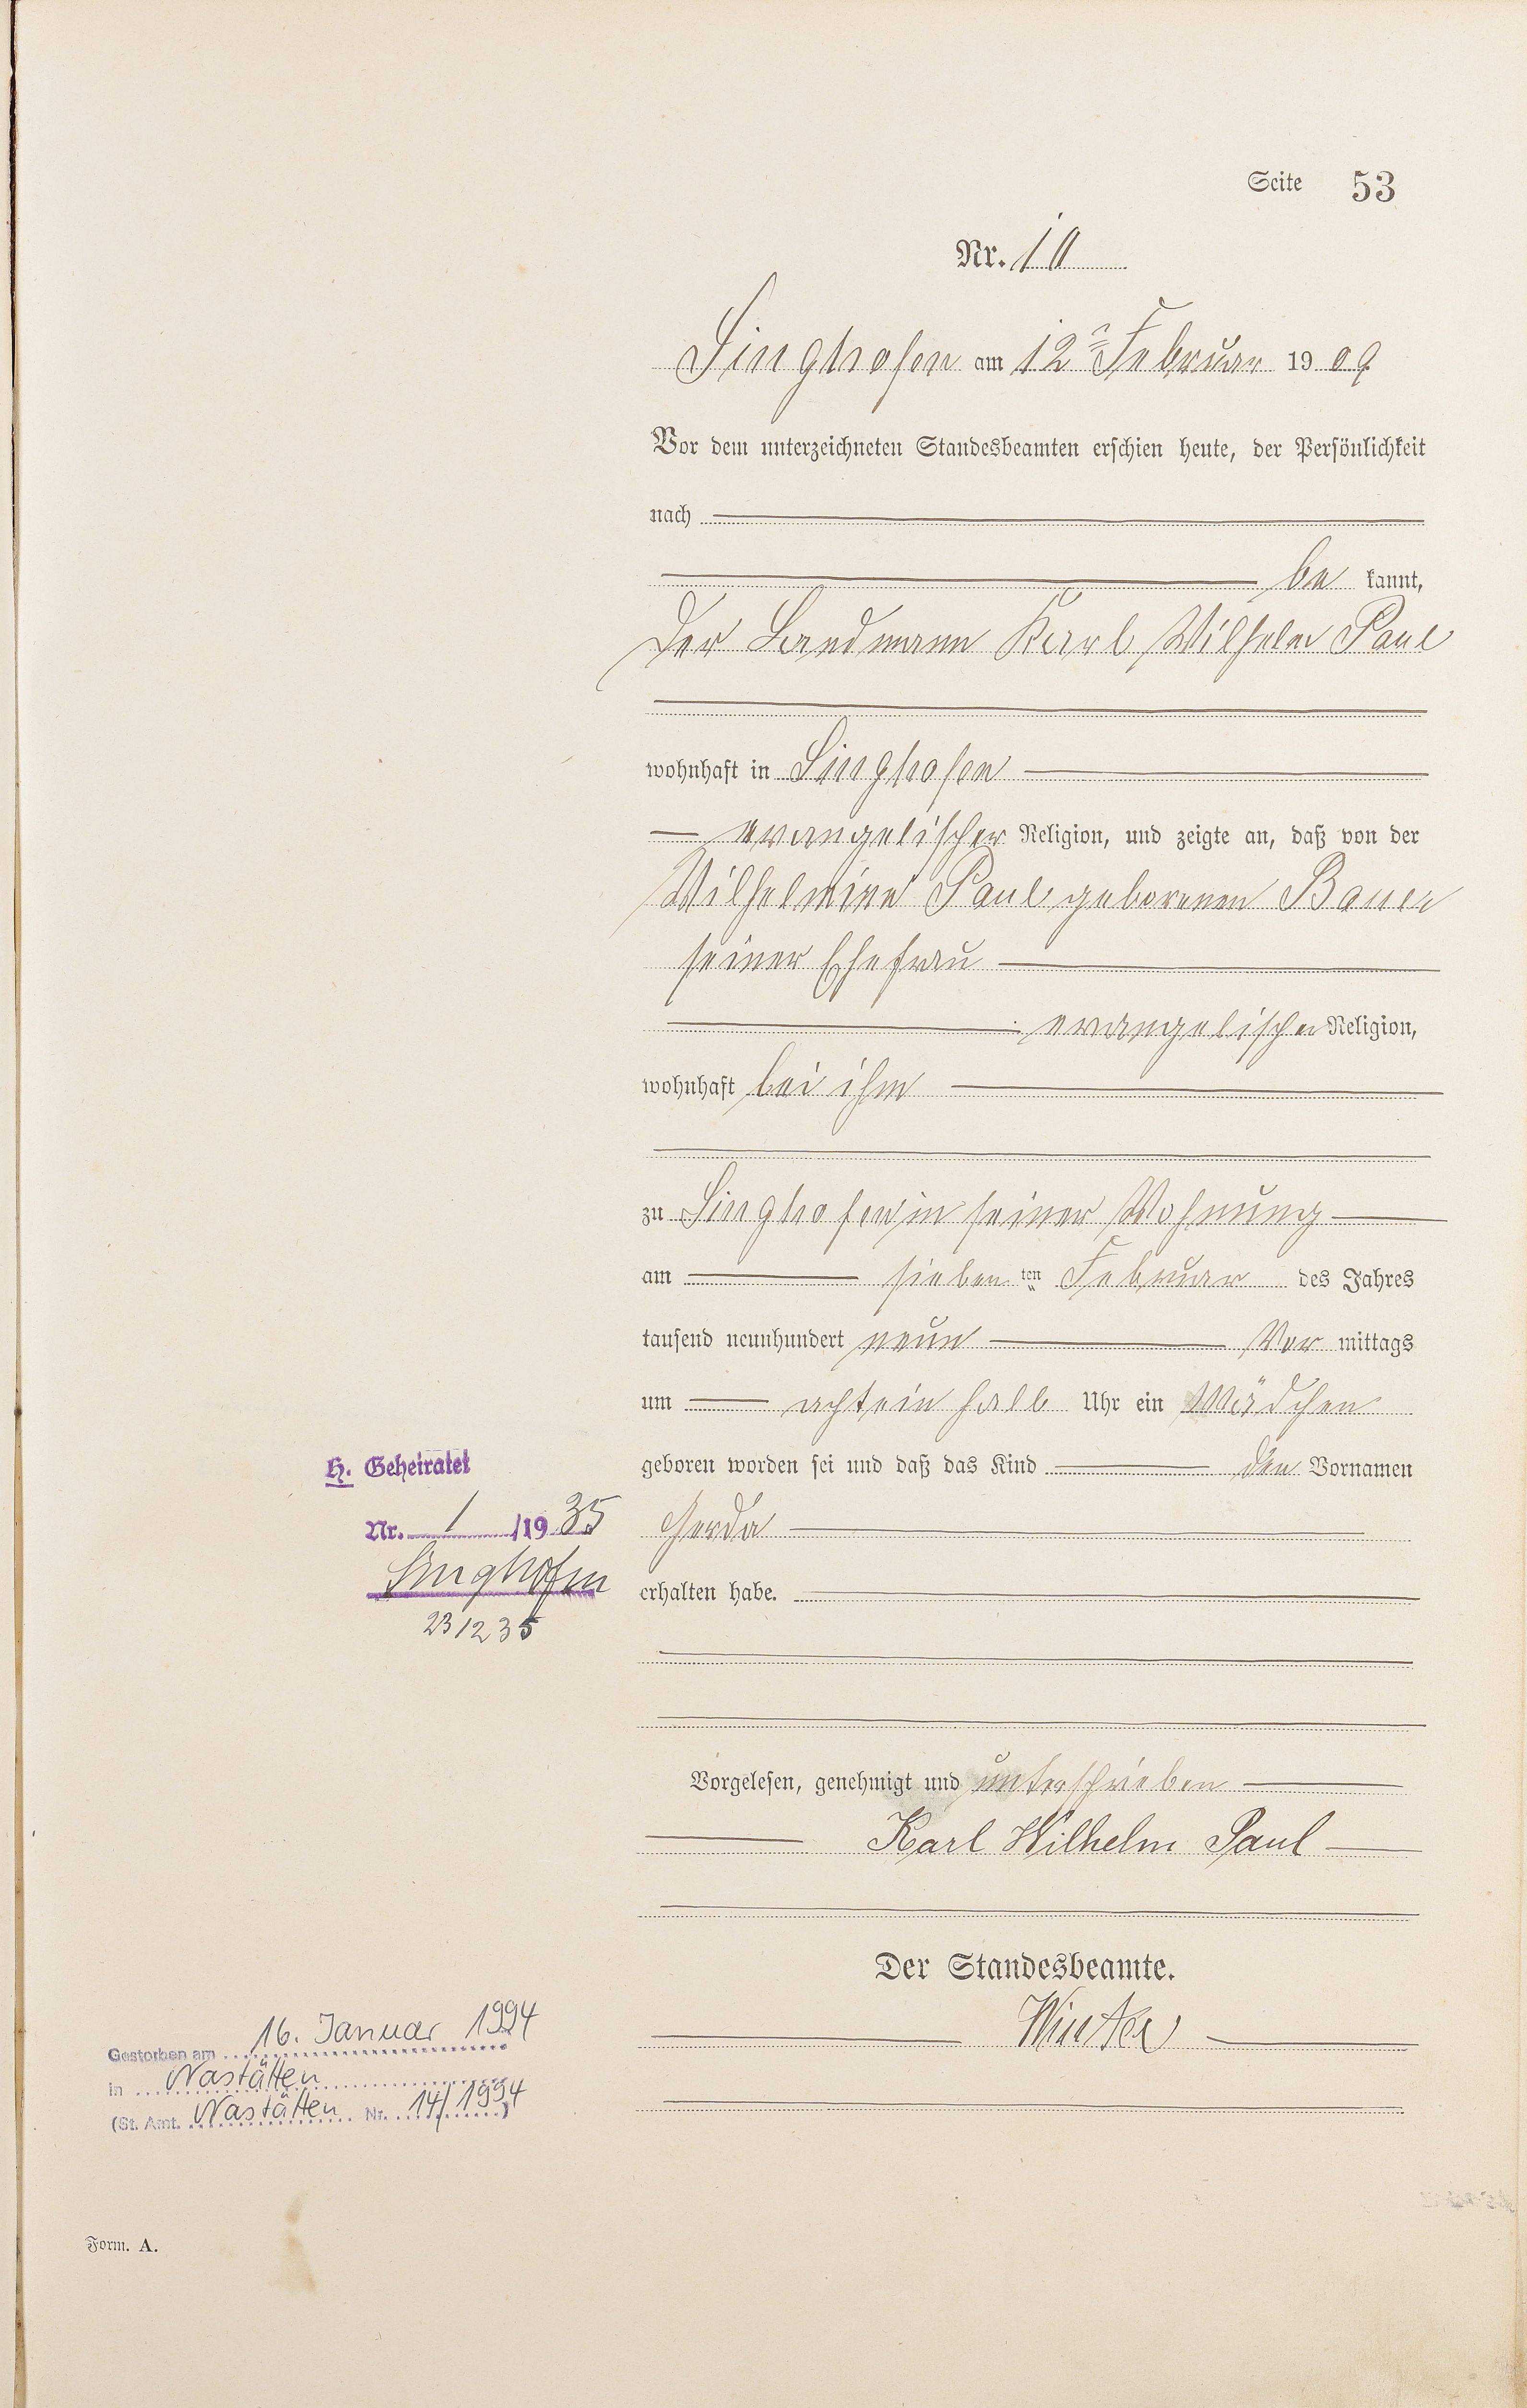 Seite 53
Nr. 10
Singhofen am 12ten Februar 1909
Vor dem unterzeichneten Standesbeamten erschien heute, der Persönlichkeit
nach
be kannt,
der Landmann Karl Wilhelm Paul
wohnhaft in Singhofen
evangelischer Religion, und zeigte an, daß von der
Wilhelmine Paul geborenen Bauer
seiner Ehefrau
evangelischer Religion,
wohnhaft bei ihm
zu Singhofen in seiner Wohnung
am sieben ten Februar des Jahres
tausend neunhundert neun Vor mittags
um acht ein halb Uhr ein Mädchen
geboren worden sei und daß das Kind den Vornamen
Gerda
erhalten habe.
Vorgelesen, genehmigt und unterschrieben
Karl Wilhelm Paul
Der Standesbeamte.
Winter
H. Geheiratet
Nr. 1/1935
Singhofen
23 12 35
Gestorben am 16. Januar 1994
in Nastätten
(St. Amt. Nastätten Nr. 14/1994)
Form. A.